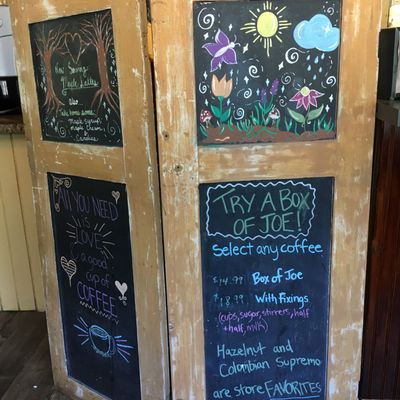 Now Serving
Maple Lattes
Also
Take home some:
Maple Syrup,
Maple Cream,
& Candies
All YOU NEED
is
LOVE
& a good
cup of
COFFEE
TRY A BOX
OF JOE!
Select any coffee
$14.99 Box of Joe
$18.99 With Fixings
(cups, sugar, stirrers, half
+ half, milk)
Hazelnut and
Colombian Supremo
are store FAVORITES